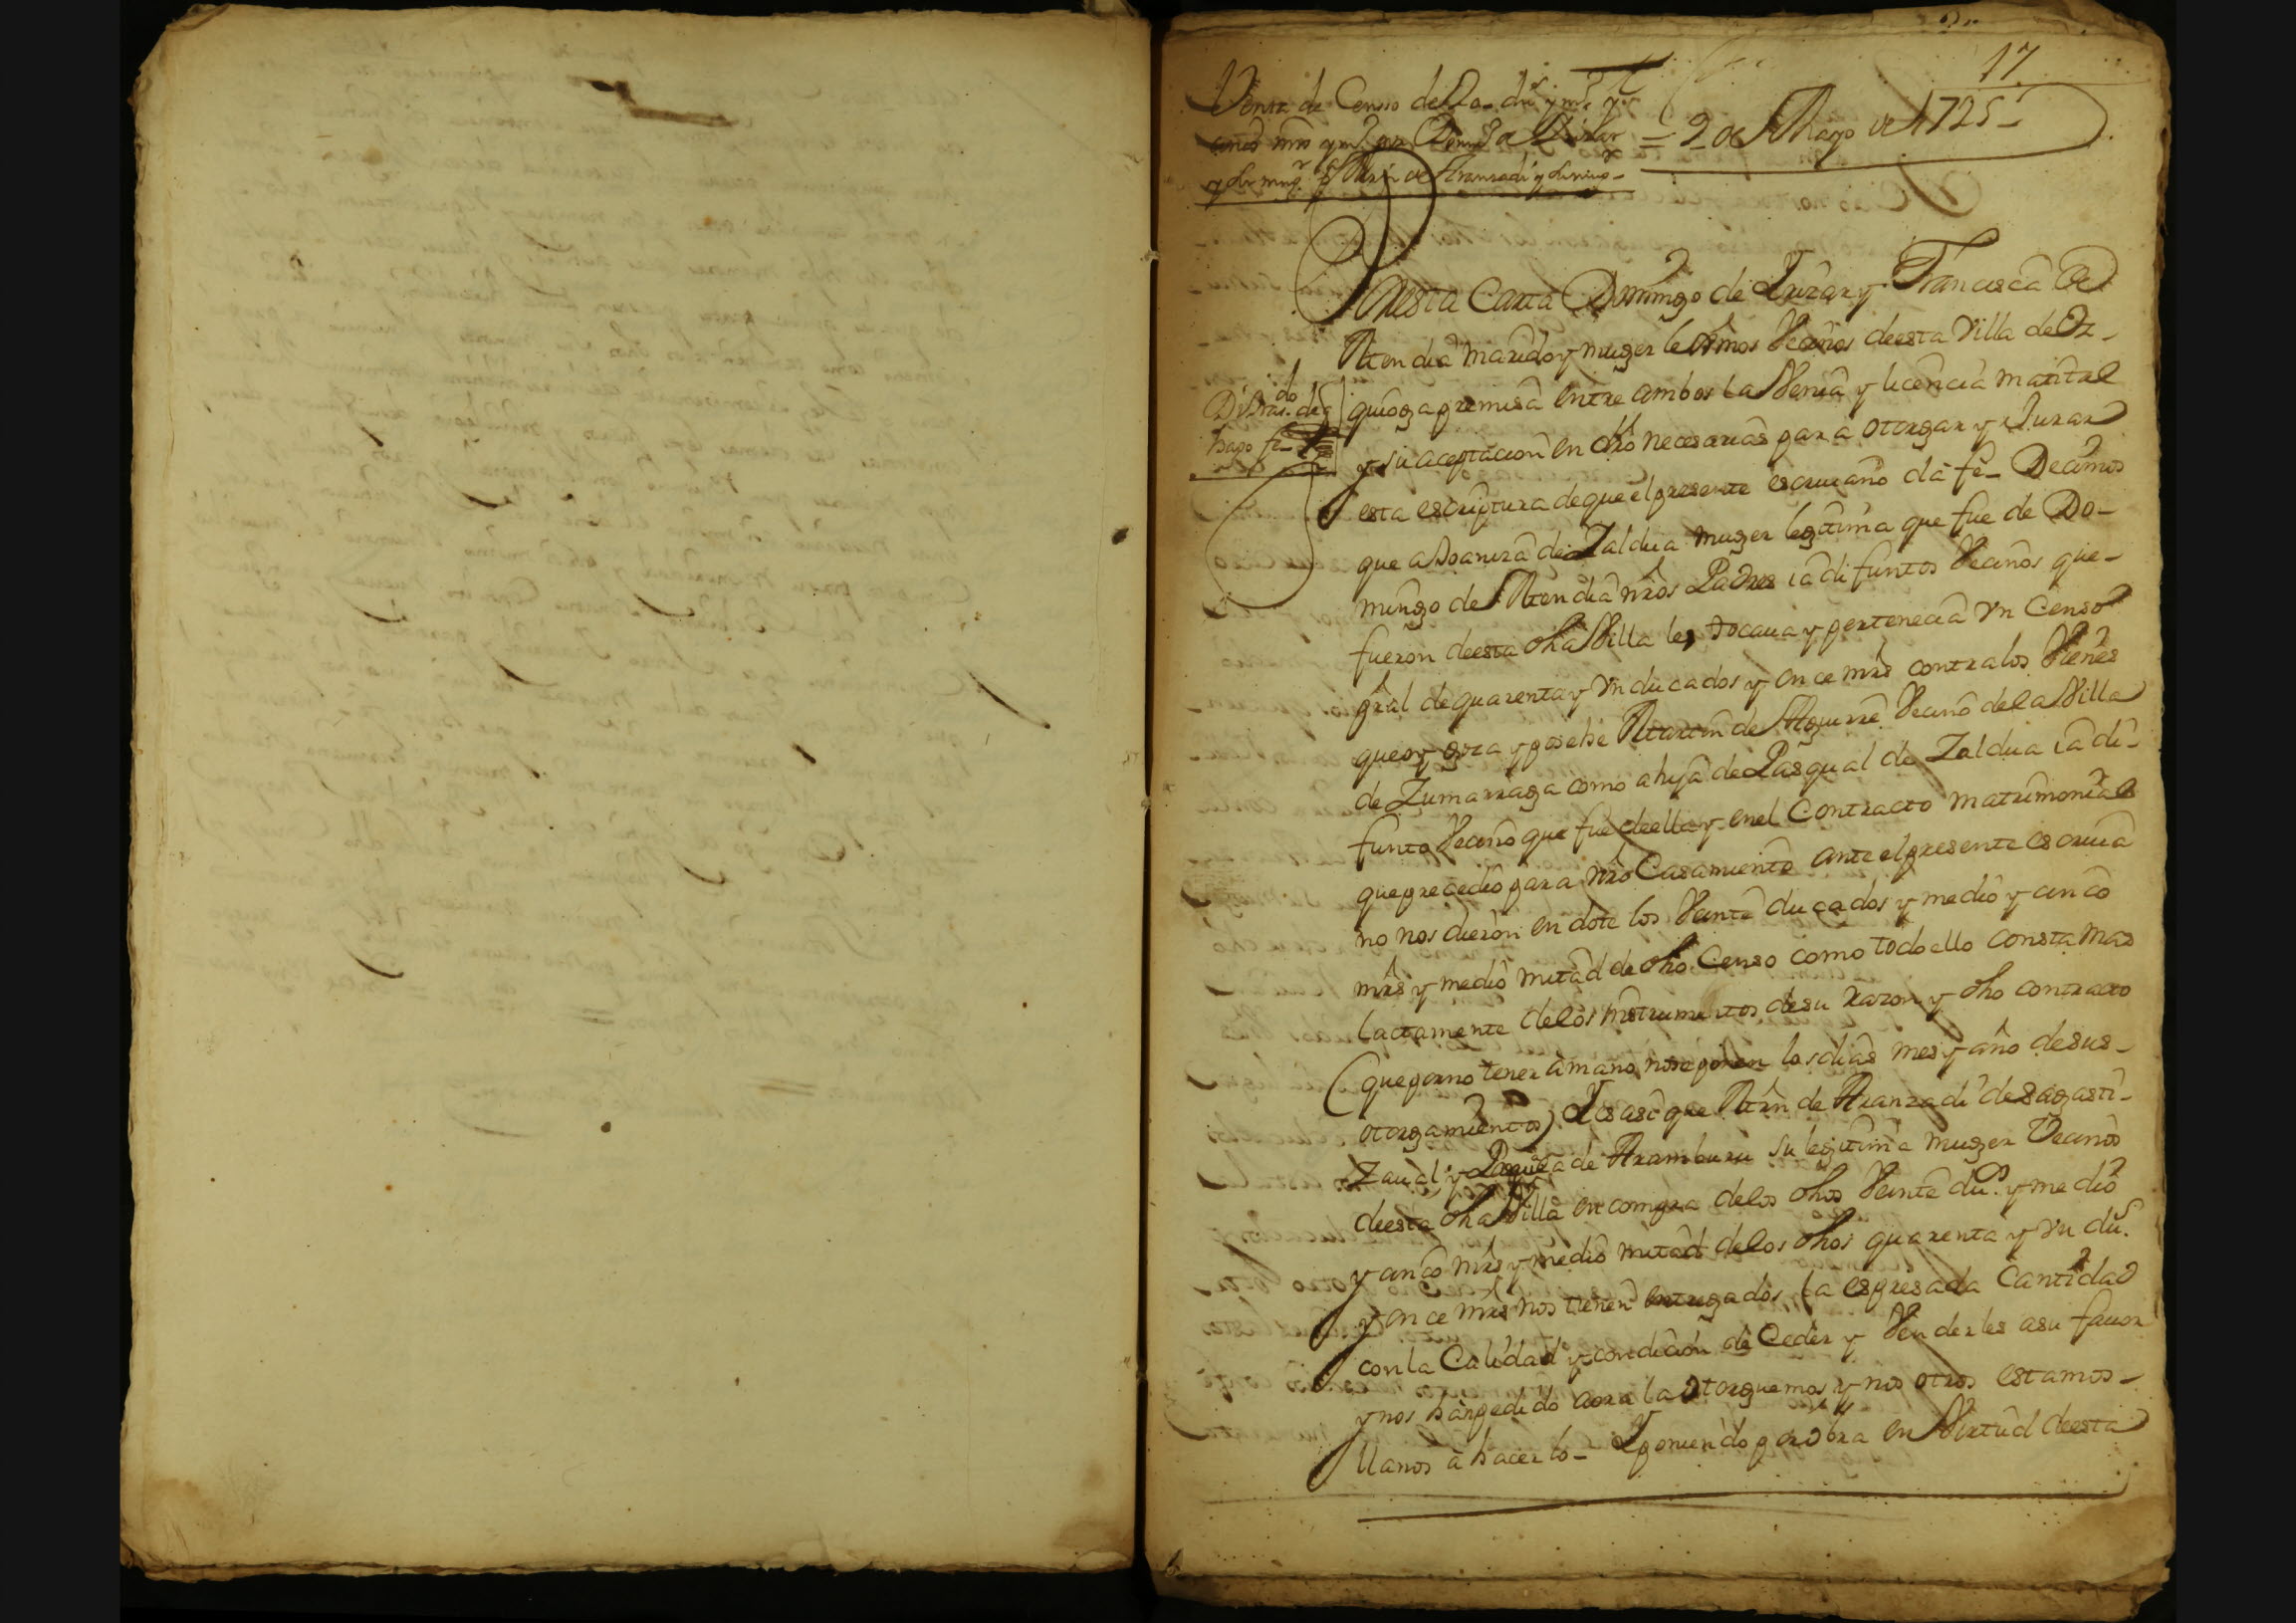 17
Venta de Censo de 20 du.s y m.o y
= 2 de Mayo de 1725
y su mug.r p.a Mrn de Aranzadi y su mug.r
En esta Carta Domingo de Lizar y Francisca de
Mendia marido y muger lexmos Vecinos de esta Villa de Oz-
quioza premisa entre ambos la Venia y licencia marital
hago fe
y su aceptacion en dho necesarias para otorgar y Jurar
esta escriptura de que el presente escriuano da fe - Decimos
que a Joaniza de Zaldua muger legitima que fue de Do-
mingo de Mendia nros Padres ia difuntos Vecinos que-
fueron de esta dha Villa le tocaua y pertenecia vn Censo
pral de quarenta y vn ducados y once mrs contra los Vienes
que oy goza y posehe Martin de Aguirre Vecino de la Villa
de Zumarraga como a hija de Pasqual de Zaldua ia di-
funto Vecino que fue de ella y en el Contracto matrimonial
que precedio para nro Casamiento ante el presente escriua
no nos dieron en dote los Veinte ducados y medio y cinco
mrs y medio mitad de dho Censo como todo ello consta mas
lactamente de los instrumentos de su razon y dho contracto
(que por no tener a mano, no se ponen los dias mes y año de sus-
otorgamientos) Y es asi que Mrn de Aranzadi de Sagasti-
Zaual y de Aramburu su legitima muger Vecinos
de esta dha Villa en compra de los dhos Veinte du.s y medio
y cinco mrs y medio mitad de los dhos quarenta y vn du.s
y once mrs nos tienen entregados la espresada Cantidad
con la Calidad y condicion de Ceder y Venderles a su fauor
y nos han pedido aora la otorguemos y nos otros estamos-
llanos a hacerlo - Y poniendo por obra en Virtud de esta